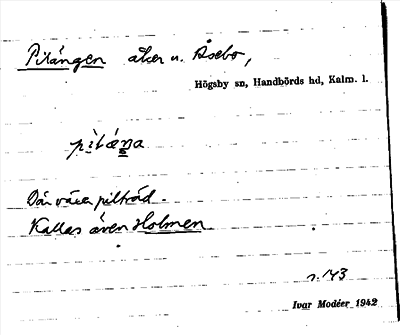 Pilängen åker u. Åsebo,
Högsby sn, Handbörds hd, Kalm. l.
Där växer pilträd.
Kallas även Holmen.
s. 143
Ivar Modéer 1942